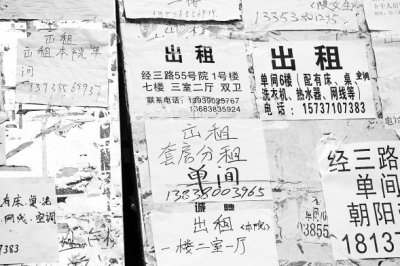 13353801295
出租
出租本院单
间
13738569937
出租
经三路55号院1号楼
七楼 三室二厅 双卫
联系电话：13939025767
13683835924
出租
单间6楼（配有床、桌、空调
洗衣机、热水器、网线等）
电话：15737107383
出租
套房分租
单间
13838003965
诚
出租〈本院〉
一楼二室一厅
经三路
单间
朝阳
18137
有床
网线、空调
7383
3855